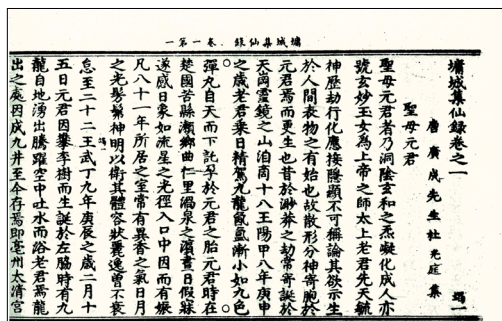 墉城集仙錄　卷一　第一
墉城集仙錄卷之一
唐廣成先生杜光庭集
聖母元君
聖母元君者乃洞陰玄和之炁凝化成人亦
號玄妙玉女為上帝之師太上老君先天毓
神歷劫行化應接隱顯不可稱論其欲示生
於人間表物之有始也故散形分神寄胞於
元君焉而更生也昔於渺莽之劫常寄誕於
天崗靈鏡之山洎商十八王陽甲八年庚申
之歲老君乘日精駕九龍氤氳漸小如九色
彈丸自天而下託孕於元君之胎元君時在
楚國苦縣瀨鄉曲仁里渦泉之濱晝日假寐
遂感日象如流星之光徑入口中因而有娠
凡八十一年所居之室常有異香之氣日月
之光髣髴神明以衛其體容狀麗逸曾不衰
怠至二十二王武丁九年庚辰之歲二月十
五日元君因攀李樹而生誕於左脇時有九
龍自地湧出騰躍空中吐水而浴老君焉龍
出之處因成九井至今存焉即亳州太清宮